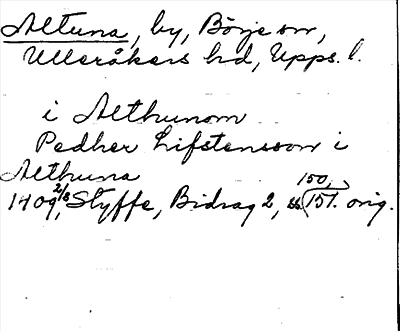 Altuna, by, Börje sn,
Ulleråkers hd, Upps. l.
i Althunom
Pedher Lifstensson i
Althuna
1409 2/8, Styffe, Bidrag 2, s. 150, 151. orig.